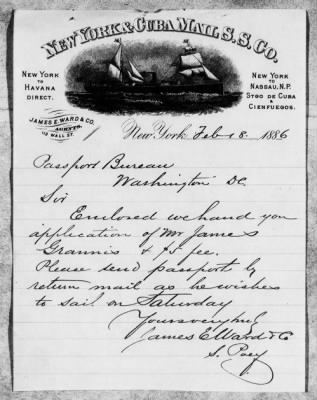 NEW YORK & CUBA MAIL S.S. CO.
NEW YORK
TO
HAVANA
DIRECT.
NEW YORK
TO
NASSAU, N.P.
STGO DE CUBA
&
CIENFUEGOS.
JAMES E. WARD & CO.
AGENTS,
113 WALL ST.
New York Feb 18 1886
Passport Bureau
Washington DC
Sir
Enclosed we hand you
application of Mr James
Grannis & $5 fee.
Please send passport by
return mail as he wishes
to sail on Saturday
Yours very truly
James E Ward & Co
S. Poey